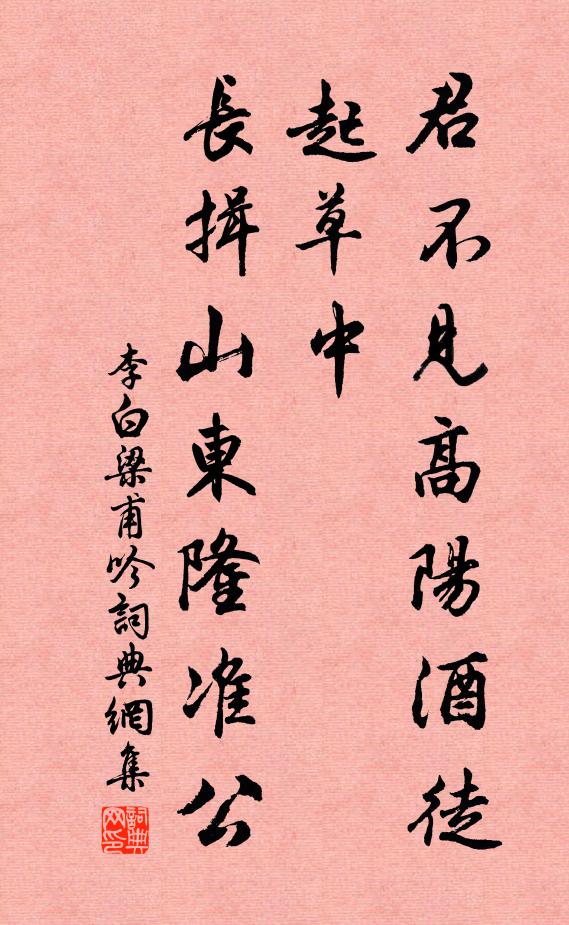 君不見高陽酒徒
起草中
長揖山東隆准公
李白梁甫吟詞典網集
詞典网印